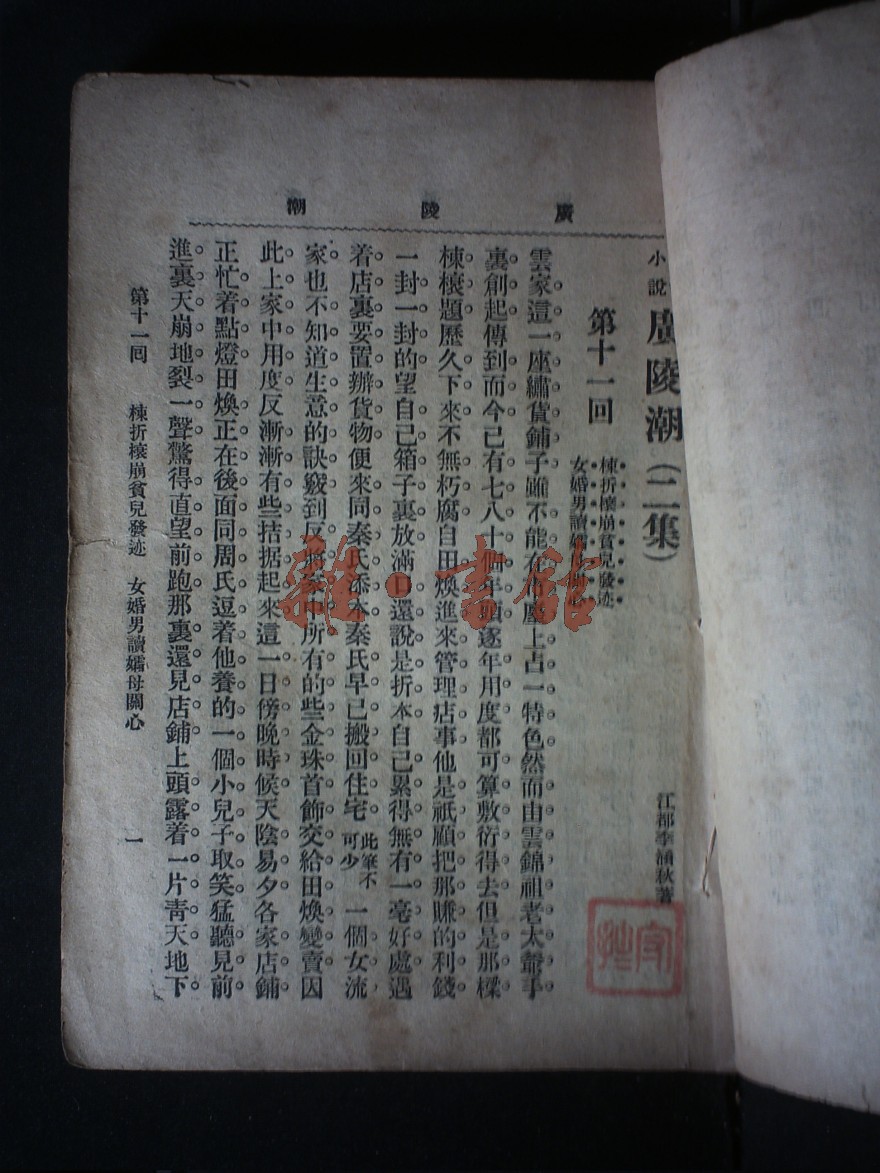 廣陵潮
小說 廣陵潮(二集)
江都李涵秋著
第十一回
棟折榱崩貧兒發迹
女婚男讀孀母關心
雲家這一座繡貨鋪子雖不能在各座上占一特色然而由雲錦祖老太爺手
裏創起傳到而今已有七八十個年頭逐年用度都可算敷衍得去但是那樑
棟榱題歷久下來不無朽腐自田煥進來管理店事他是祇顧把那賺的利錢
一封一封的望自己箱子裏放滿口還說是折本自己累得無有一毫好處遇
着店裏要置辦貨物便來同秦氏添本秦氏早已搬回住宅此筆不可少一個女流
家也不知道生意的訣竅到反將家中所有的些金珠首飾交給田煥變賣因
此上家中用度反漸漸有些拮据起來這一日傍晚時候天陰易夕各家店鋪
正忙着點燈田煥正在後面同周氏逗着他養的一個小兒子取笑猛聽見前
進裏天崩地裂一聲驚得直望前跑那裏還見店鋪上頭露着一片青天地下
第十一回 棟折榱崩貧兒發迹 女婚男讀孀母關心 一
雜·書館